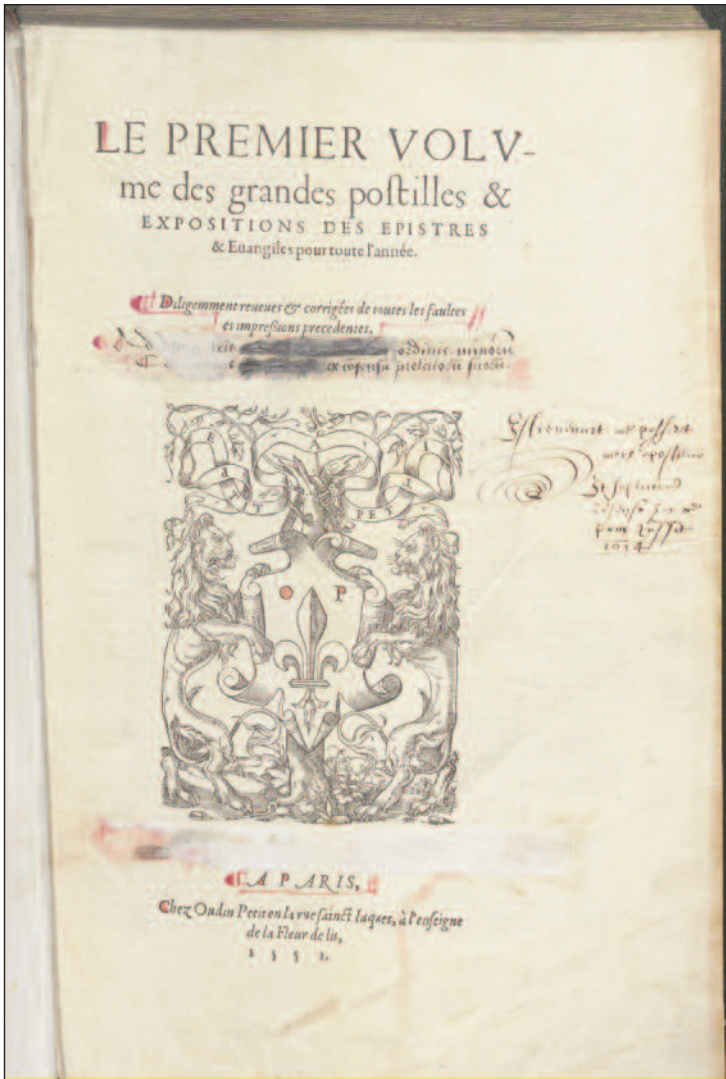 LE PREMIER VOLV-
me des grandes postilles &
EXPOSITIONS DES EPISTRES
& Euangiles pour toute l'année.
Diligemment reueues & corrigées de toutes les faultes
es impressions precedentes.
ordinis minorū
ex cōsensu
PETIT A PETIT
O P
me possidet
1614
A PARIS,
Chez Oudin Petit en la rue sainct Iaques, à l'enseigne
de la Fleur de lis,
1551.